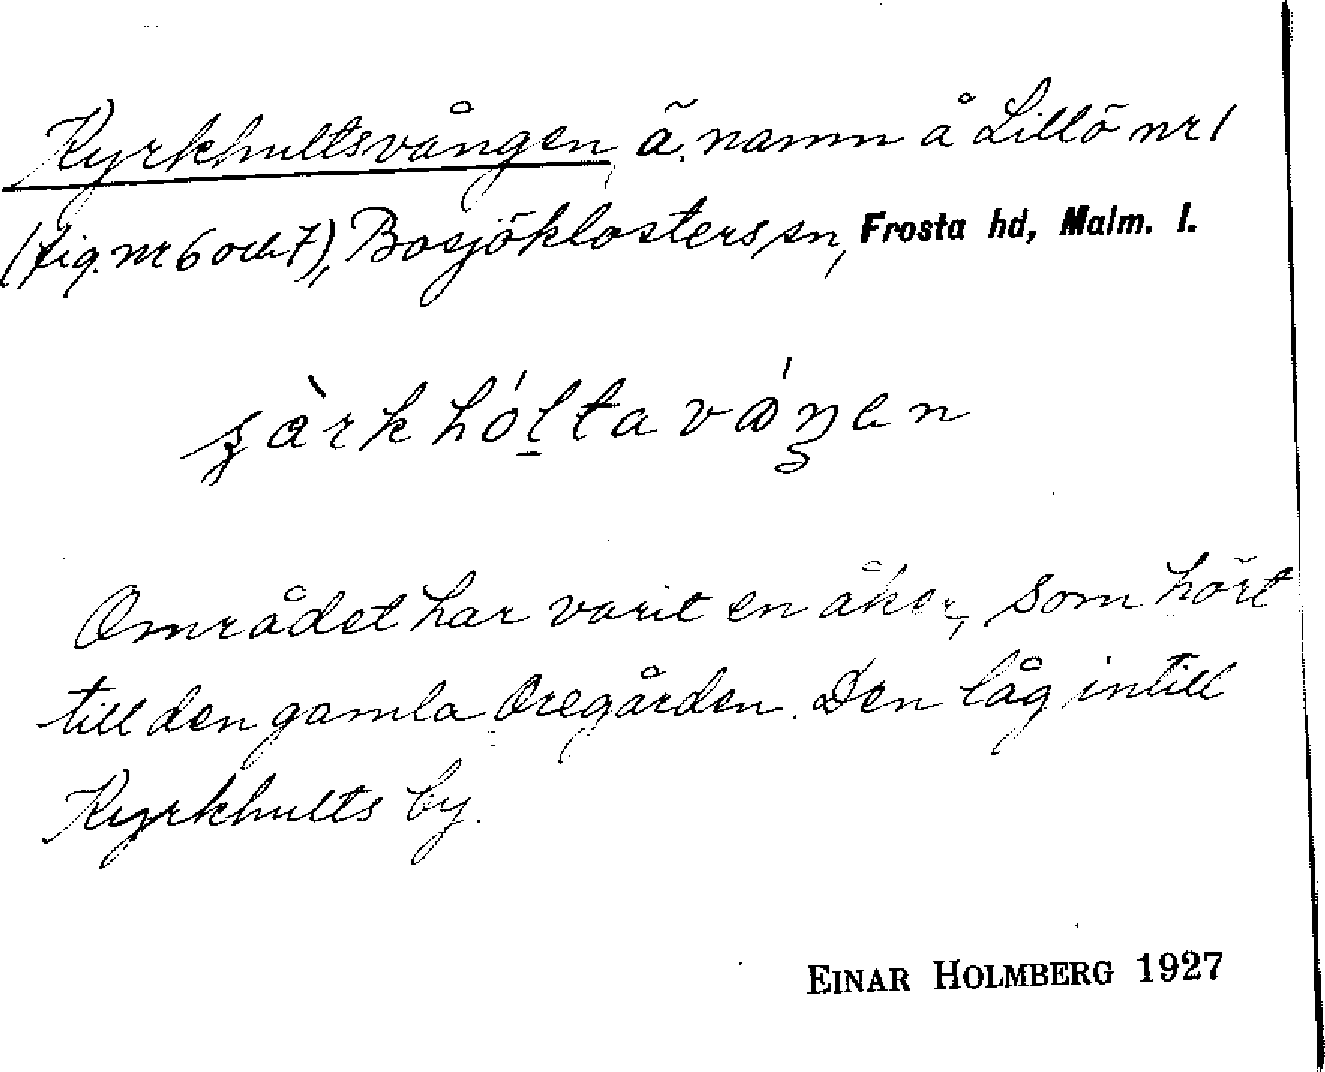 Kyrkhultsvången, ä. namn å Lillö nr 1
(fig. nr 6 och 7), Bosjöklosters sn, Frosta hd, Malm. l.
Området har varit en åker, som hört
till den gamla Öregården. Den låg intill
Kyrkhults by.
EINAR HOLMBERG 1927